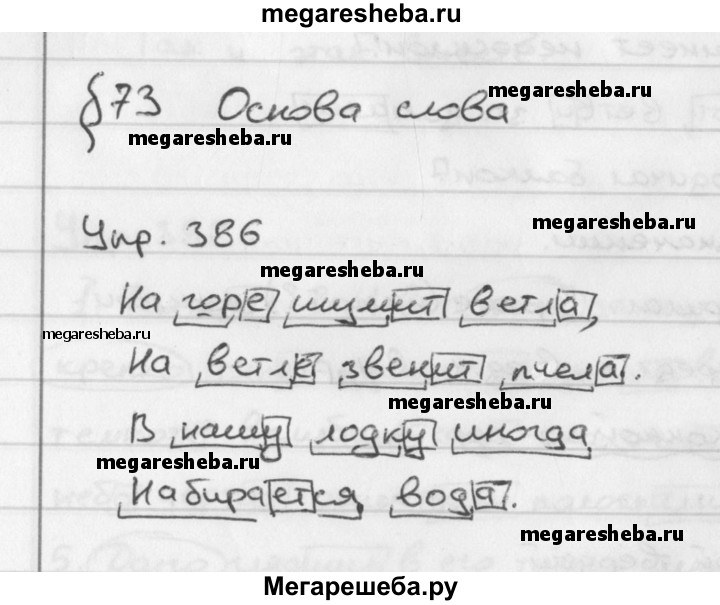 megaresheba.ru
§73 Основа слова
megaresheba.ru
megaresheba.ru
Упр. 386
megaresheba.ru
megaresheba.ru
На горе шумит ветла,
megaresheba.ru
На ветле звенит пчела.
megaresheba.ru
В нашу лодку иногда
megaresheba.ru
Набирается вода.
megaresheba.ru
Мегарешеба.ру